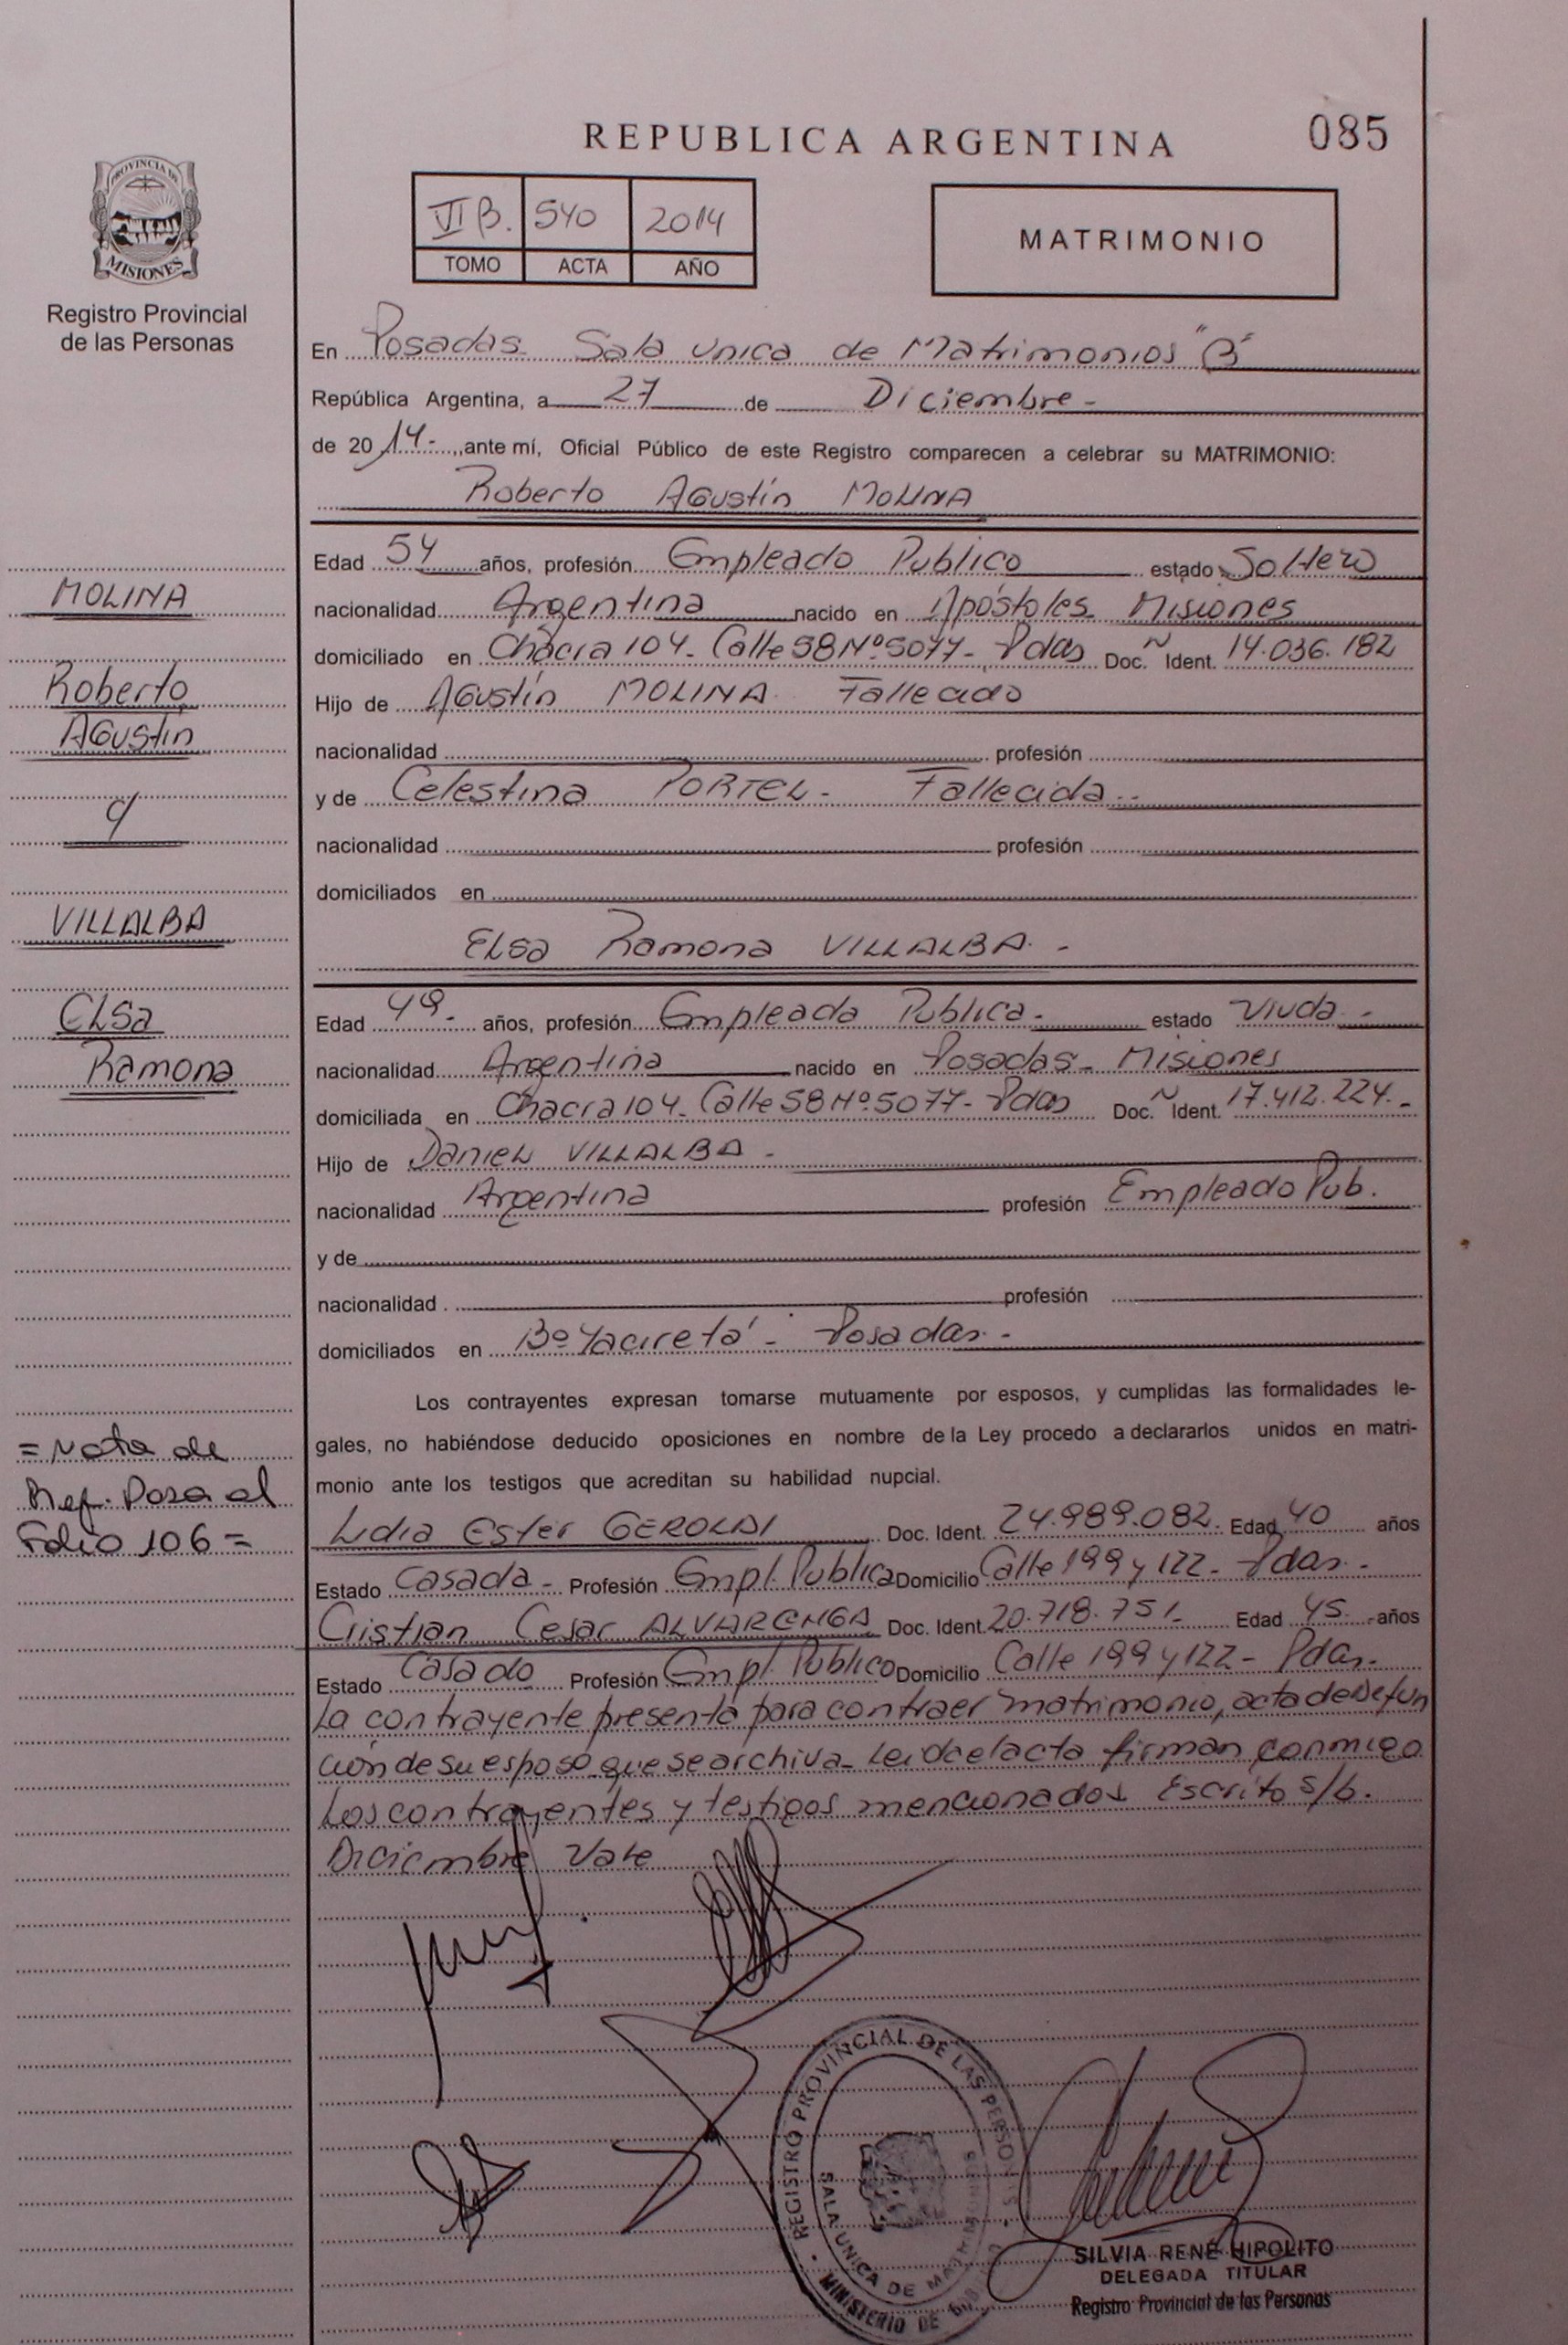 REPUBLICA ARGENTINA 085
PROVINCIA DE MISIONES
Registro Provincial
de las Personas
VI B. 540 2014
TOMO ACTA AÑO
MATRIMONIO
En Posadas Sala Unica de Matrimonios "B"
República Argentina, a 27 de Diciembre -
de 20 14-, ante mí, Oficial Público de este Registro comparecen a celebrar su MATRIMONIO:
Roberto Agustín MOLINA
Edad 54 años, profesión Empleado Publico estado Soltero
nacionalidad Argentina nacido en Apóstoles Misiones
domiciliado en Chacra 104 - Calle 58 Nº 5077 - Pdas Doc. Ident. 14.036.182
Hijo de Agustín MOLINA Fallecido
nacionalidad profesión
y de Celestina PORTEL - Fallecida -
nacionalidad profesión
domiciliados en
Elsa Ramona VILLALBA -
Edad 49 - años, profesión Empleada Publica - estado Viuda -
nacionalidad Argentina nacido en Posadas - Misiones
domiciliada en Chacra 104 - Calle 58 Nº 5077 - Pdas Doc. Ident. 17.412.224 -
Hijo de Daniel VILLALBA -
nacionalidad Argentina profesión Empleado Pub.
y de
nacionalidad profesión
domiciliados en Bº Yacireta' - Posadas -
Los contrayentes expresan tomarse mutuamente por esposos, y cumplidas las formalidades le-
gales, no habiéndose deducido oposiciones en nombre de la Ley procedo a declararlos unidos en matri-
monio ante los testigos que acreditan su habilidad nupcial.
Lidia Ester GEROLDI Doc. Ident. 24.989.082 - Edad 40 años
Estado Casada - Profesión Empl. Publica Domicilio Calle 199 y 122 - Pdas -
Cristian Cesar ALVARENGA Doc. Ident. 20.718.751 - Edad 45 años
Estado Casado Profesión Empl. Publico Domicilio Calle 199 y 122 - Pdas -
La contrayente presenta para contraer matrimonio, acta de Defun
ción de su esposo que se archiva - Leida el acta firman conmigo
Los contrayentes y testigos mencionados Escrito s/b.
Diciembre Vale
MOLINA
Roberto
Agustín
y
VILLALBA
Elsa
Ramona
= Nota de
Ref. Pasa al
Folio 106 =
REGISTRO PROVINCIAL DE LAS PERSONAS
SALA UNICA DE MATRIMONIOS
MINISTERIO DE
SILVIA RENÉ HIPOLITO
DELEGADA TITULAR
Registro Provincial de las Personas